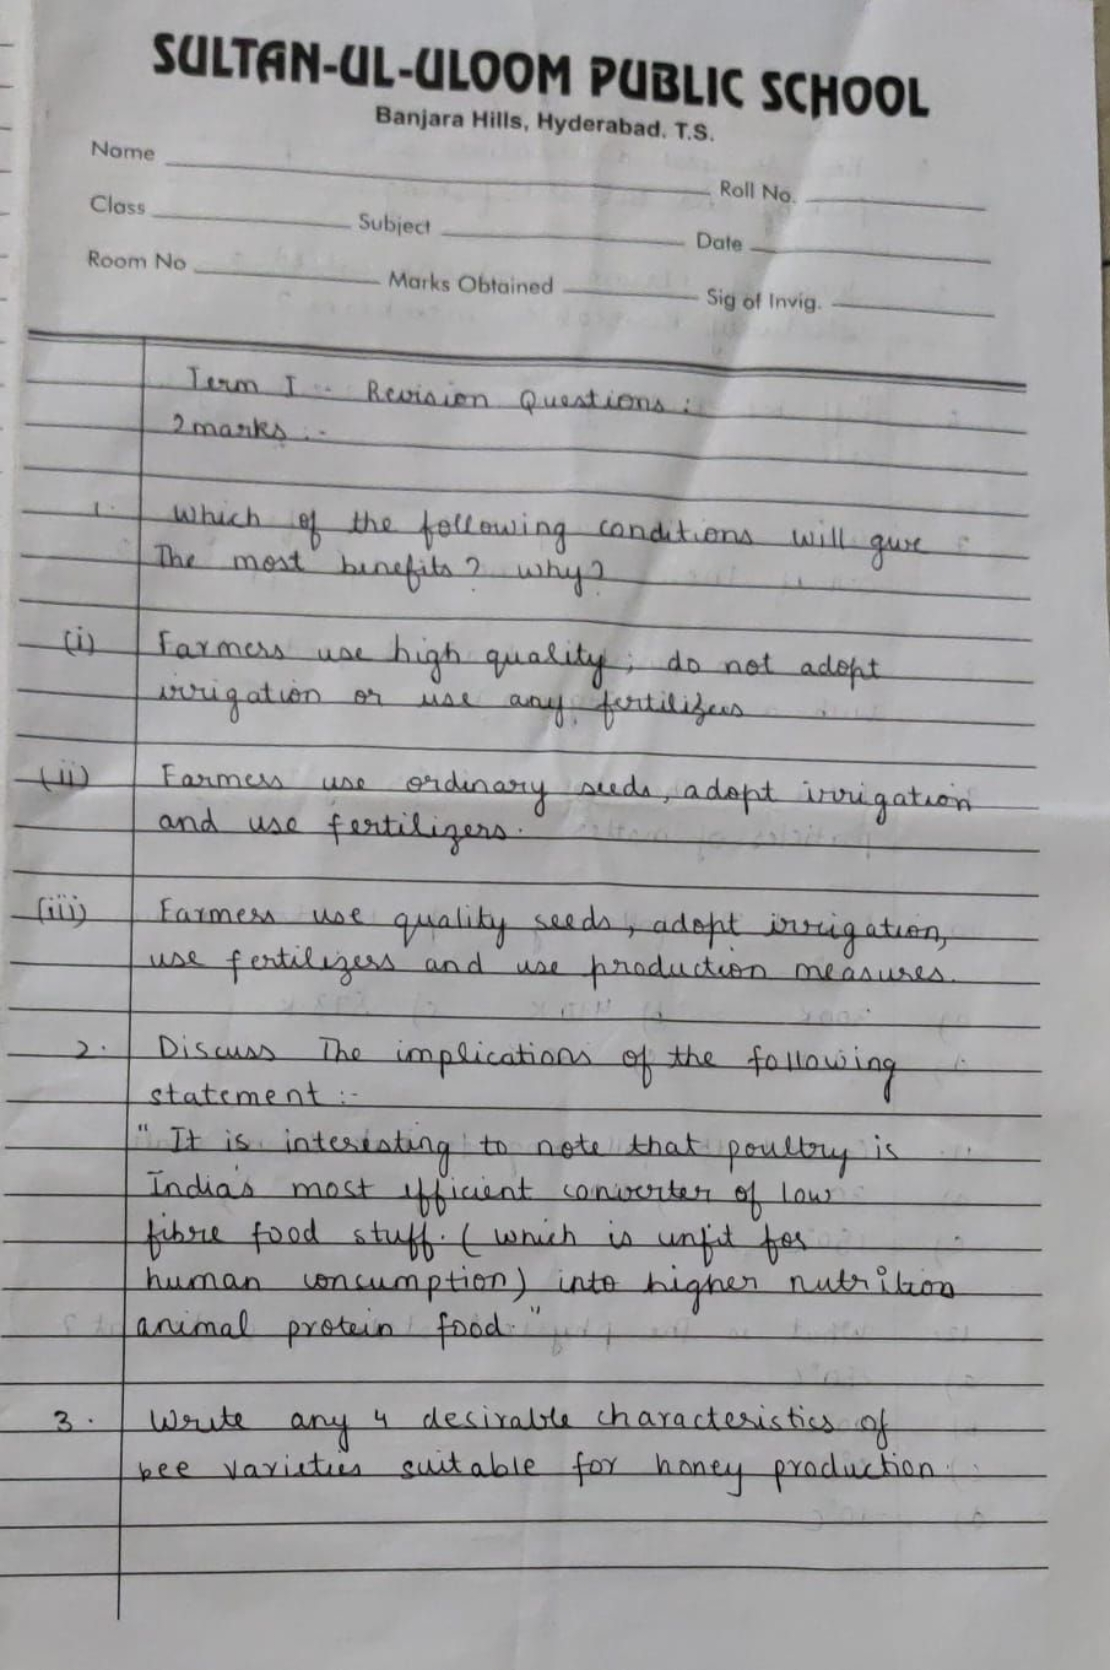 SULTAN-UL-ULOOM PUBLIC SCHOOL
Banjara Hills, Hyderabad. T.S.
Name Roll No.
Class Subject Date
Room No Marks Obtained Sig of Invig.
Term I :- Revision Questions :
2marks :-
1. Which of the following conditions will give
The most benefits? why?
(i) Farmers use high quality; do not adopt
irrigation or use any fertilizers
(ii) Farmers use ordinary seeds, adopt irrigation
and use fertilizers.
(iii) Farmers use quality seeds, adopt irrigation,
use fertilizers and use production measures.
2. Discuss The implications of the following
statement :-
" It is interesting to note that poultry is
India's most efficient converter of low
fibre food stuff. ( which is unfit for
human consumption) into higher nutrition
animal protein food. "
3. Write any 4 desirable characteristics of
bee varieties suitable for honey production.